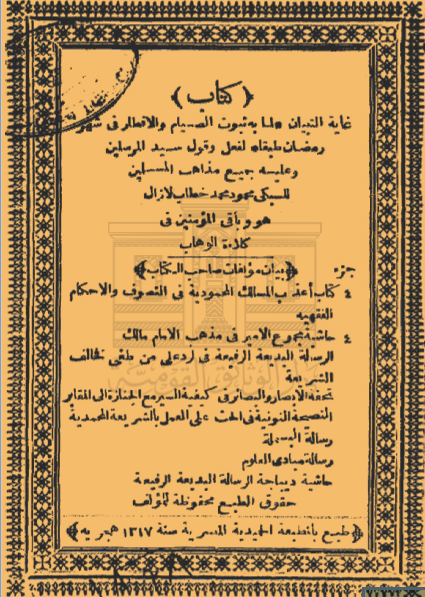 ﴿ كتاب ﴾
غاية التبيان لما به ثبوت الصيام والافطار فى شهر
رمضان طبقا لفعل وقول سيد المرسلين
وعليه جميع مذاهب المسلمين
للسبكى محمود محمد خطاب لازال
هو وباقى المؤمنين فى
كلاءة الوهاب
﴿ بيان مؤلفات صاحب الكتاب ﴾
جزء
٤ كتاب أعذب المسالك المحمودية فى التصوف والاحكام
الفقهيه
٤ حاشية مجموع الامير فى مذهب الامام مالك
الرسالة البديعة الرفيعة فى لرد على من طغى فخالف
الشريعة
تحفة الابصار والبصائر فى كيفية السير مع الجنازة الى المقابر
النصيحة النونية فى الحث على العمل بالشريعة المحمدية
رسالة البسملة
رسالة مبادى العلوم
حاشية ديباجة الرسالة البديعة الرفيعة
حقوق الطبع محفوظة للمؤلف
﴿ طبع بالمطبعة الحميدية المصرية سنة ١٣١٧ هجريه ﴾